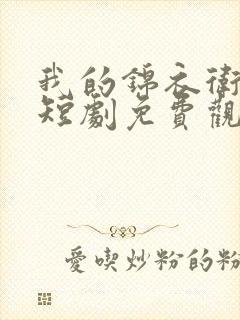 我的錦衣衛
短劇免費觀
愛喫炒粉的粉